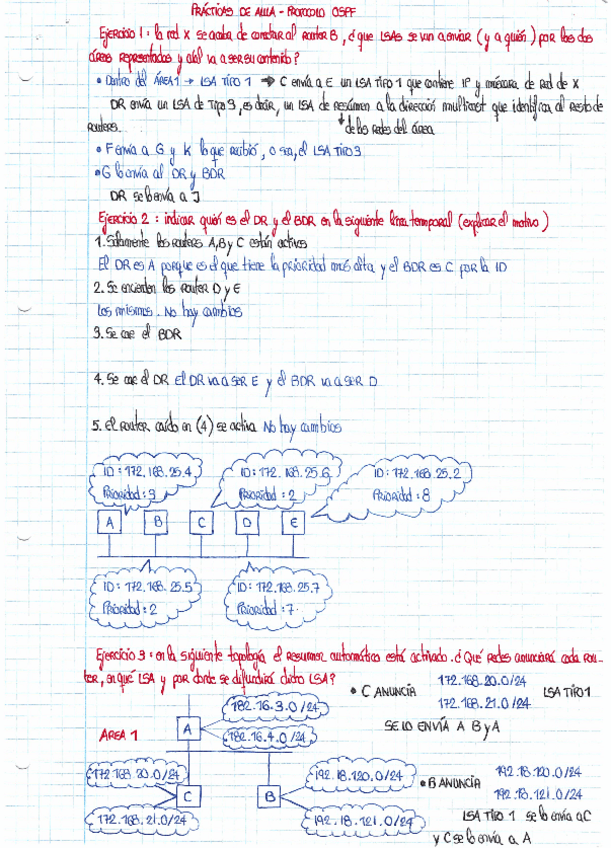 PRÁCTICAS DE AULA - PROTOCOLO OSPF
Ejercicio 1: la red X se acaba de conectar al router B, ¿que LSAs se van a enviar (y a quién) por las dos
áreas representadas y cuál va a ser su contenido?
• Dentro del ÁREA 1 → LSA TIPO 1 ⇒ C envía a E un LSA TIPO 1 que contiene IP y máscara de Red de X
DR envía un LSA de Tipo 3, es decir, un LSA de resumen a la dirección multicast que identifica al resto de
routers.
de las redes del área
• F envía a G y K lo que recibió, o sea, el LSA TIPO 3
• G lo envía al DR y BDR
DR se lo envía a J
Ejercicio 2: indicar quién es el DR y el BDR en la siguiente línea temporal (explicar el motivo)
1. Solamente los routers A, B y C están activos
El DR es A porque es el que tiene la prioridad más alta y el BDR es C por la ID
2. Se encienden los Router D y E
Los mismos. No hay cambios
3. Se cae el BDR
4. Se cae el DR El DR va a ser E y el BDR va a ser D
5. El Router caído en (4) se activa No hay cambios
ID: 172.168.25.4
Prioridad: 3
ID: 172.168.25.6
Prioridad: 2
ID: 172.168.25.2
Prioridad: 8
A B C D E
ID: 172.168.25.5
Prioridad: 2
ID: 172.168.25.7
Prioridad: 7
Ejercicio 3: en la siguiente topología el resumen automático está activado. ¿Qué redes anunciará cada rou-
ter, en qué LSA y por donde se difundirá dicho LSA?
• C ANUNCIA 172.168.20.0/24
172.168.21.0/24 LSA TIPO 1
SE LO ENVÍA A B y A
AREA 1
182.16.3.0/24
A
182.16.4.0/24
172.168.20.0/24
C
172.168.21.0/24
192.18.120.0/24
B
192.18.121.0/24
• B ANUNCIA 192.18.120.0/24
192.18.121.0/24
LSA TIPO 1 se lo envía a C
y C se lo envía a A